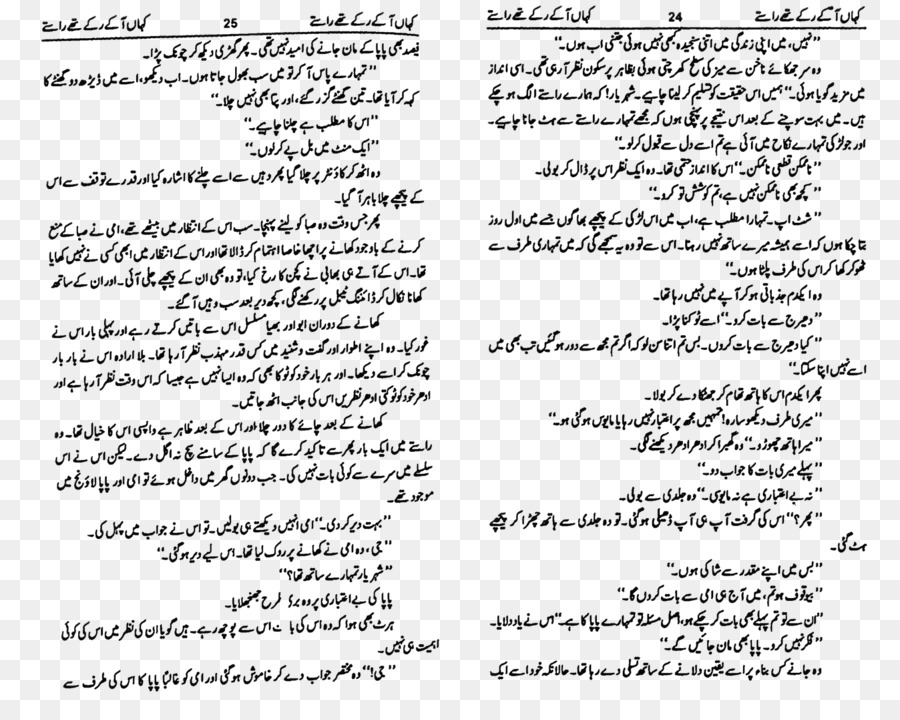 کہاں آ کے رکے تھے راستے 24 کہاں آ کے رکے تھے راستے
’’نہیں، میں اپنی زندگی میں اتنی سنجیدہ کبھی نہیں ہوئی جتنی اب ہوں۔‘‘
وہ سر جھکائے ناخن سے میز کی سطح کھرچتی ہوئی بظاہر پرسکون نظر آ رہی تھی۔ اسی انداز
میں مزید گویا ہوئی۔ ’’ہمیں اس حقیقت کو تسلیم کر لینا چاہیے۔ شہریار! کہ ہمارے راستے الگ ہو چکے
ہیں۔ میں بہت سوچنے کے بعد اس نتیجے پر پہنچی ہوں کہ مجھے تمہارے راستے سے ہٹ جانا چاہیے۔
اور جو لڑکی تمہارے نکاح میں آئی ہے تم اسے دل سے قبول کر لو۔‘‘
’’ناممکن قطعی ناممکن۔‘‘ اس کا انداز حتمی تھا۔ وہ ایک نظر اس پر ڈال کر بولی۔
’’کچھ بھی ناممکن نہیں ہے، تم کوشش تو کرو۔‘‘
’’شٹ اپ۔ تمہارا مطلب ہے، اب میں اس لڑکی کے پیچھے بھاگوں جسے میں اول روز
بتا چکا ہوں کہ اسے ہمیشہ میرے ساتھ نہیں رہنا۔ اس سے تو وہ یہ سمجھے گی کہ میں تمہاری طرف سے
ٹھوکر کھا کر اس کی طرف پلٹا ہوں۔‘‘
وہ ایکدم جذباتی ہو کر آپے میں نہیں رہا تھا۔
’’دھیرج سے بات کرو۔‘‘ اسے ٹوکنا پڑا۔
’’کیا دھیرج سے بات کروں۔ بس تم اتنا سن لو کہ اگر تم مجھ سے دور ہو گئیں تب بھی میں
اسے نہیں اپنا سکتا۔‘‘
پھر ایکدم اس کا ہاتھ تھام کر جھٹکا دے کر بولا۔
’’میری طرف دیکھو سارہ! تمہیں مجھ پر اعتبار نہیں رہا یا مایوس ہو گئی ہو۔‘‘
’’میرا ہاتھ چھوڑو۔‘‘ وہ گھبرا کر ادھر ادھر دیکھنے لگی۔
’’پہلے میری بات کا جواب دو۔‘‘
’’نہ بے اعتباری ہے نہ مایوسی۔‘‘ وہ جلدی سے بولی۔
’’پھر؟‘‘ اس کی گرفت آپ ہی آپ ڈھیلی ہو گئی۔ تو وہ جلدی سے ہاتھ چھڑا کر پیچھے
ہٹ گئی۔
’’بس میں اپنے مقدر سے شاکی ہوں۔‘‘
’’بیوقوف ہو تم، میں آج ہی امی سے بات کروں گا۔‘‘
’’ان سے تو تم پہلے بھی بات کر چکے ہو، اصل مسئلہ تو تمہارے پاپا کا ہے۔‘‘ اس نے یاد دلایا۔
’’فکر نہیں کرو۔ پاپا بھی مان جائیں گے۔‘‘
وہ جانے کس بناء پر اسے یقین دلانے کے ساتھ تسلی دے رہا تھا۔ حالانکہ خود اسے ایک
کہاں آ کے رکے تھے راستے 25 کہاں آ کے رکے تھے راستے
فیصد بھی پاپا کے مان جانے کی امید نہیں تھی۔ پھر گھڑی دیکھ کر چونک پڑا۔
’’تمہارے پاس آ کر تو میں سب بھول جاتا ہوں۔ اب دیکھو، اسے میں ڈیڑھ دو گھنٹے کا
کہہ کر آیا تھا۔ تین گھنٹے گزر گئے، اور پتا بھی نہیں چلا۔‘‘
’’اس کا مطلب ہے چلنا چاہیے۔‘‘
’’ایک منٹ میں بل پے کر لوں۔‘‘
وہ اٹھ کر کاؤنٹر پر چلا گیا پھر وہیں سے اسے چلنے کا اشارہ کیا اور قدرے توقف سے اس
کے پیچھے چلا باہر آ گیا۔
پھر جس وقت وہ صبا کو لینے پہنچا۔ سب اس کے انتظار میں بیٹھے تھے، امی نے صبا کے منع
کرنے کے باوجود کھانے پر اچھا خاصا اہتمام کر ڈالا تھا اور اس کے انتظار میں ابھی کسی نے نہیں کھایا
تھا۔ اس کے آتے ہی بھابی نے کچن کا رخ کیا، تو وہ بھی ان کے پیچھے چلی آئی۔ اور ان کے ساتھ
کھانا نکال کر ڈائننگ ٹیبل پر رکھنے لگی، کچھ دیر بعد سب وہیں آ گئے۔
کھانے کے دوران ابو اور بھیا مسلسل اس سے باتیں کرتے رہے اور پہلی بار اس نے
غور کیا۔ وہ اپنے اطوار اور گفت و شنید میں کس قدر مہذب نظر آ رہا تھا۔ بلا ارادہ اس نے بار بار
چونک کر اسے دیکھا۔ اور ہر بار خود کو ٹوکا بھی کہ وہ ایسا نہیں ہے جیسا کہ اس وقت نظر آ رہا ہے اور
ادھر خود کو ٹوکتی ادھر نظریں اس کی جانب اٹھ جاتیں۔
کھانے کے بعد چائے کا دور چلا اور اس کے بعد ظاہر ہے واپسی اس کا خیال تھا۔ وہ
راستے میں ایک بار پھر سے تاکید کرے گا کہ پاپا کے سامنے سچ نہ اگل دے۔ لیکن اس نے اس
سلسلے میں سرے سے کوئی بات نہیں کی۔ جب دونوں گھر میں داخل ہوئے تو امی اور پاپا لاؤنج میں
موجود تھے۔
’’بہت دیر کر دی۔‘‘ امی انہیں دیکھتے ہی بولیں۔ تو اس نے جواب میں پہل کی۔
’’جی، وہ امی نے کھانے پر روک لیا تھا۔ اس لیے دیر ہو گئی۔‘‘
’’شہریار تمہارے ساتھ تھا؟‘‘
پاپا کی بے اعتباری پر وہ بری طرح جھنجھلایا۔
ہرٹ بھی ہوا کہ وہ اس کی بابت اس سے پوچھ رہے۔ ہیں گویا ان کی نظر میں اس کی کوئی
اہمیت ہی نہیں۔
’’جی!‘‘ وہ مختصر جواب دے کر خاموش ہو گئی اور امی کو غالبًا پاپا کا اس کی طرف سے